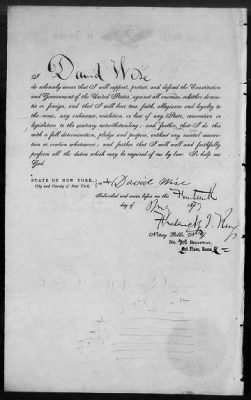 I David Wise
do solemnly swear that I will support, protect, and defend the Constitution
and Government of the United States, against all enemies, whether domes-
tic or foreign, and that I will bear true faith, allegiance and loyalty to
the same, any ordinance, resolution, or law of any State, convention or
legislature to the contrary notwithstanding; and further, that I do this
with a full determination, pledge and purpose, without any mental reserva-
tion or evasion whatsoever; and further that I will well and faithfully
perform all the duties which may be required of me by law: So help me
God.
STATE OF NEW YORK,
City and County of New York.
David Wise
Subscribed and sworn before me this
day of
Notary Public,
No. BROADWAY,
Floor, Room